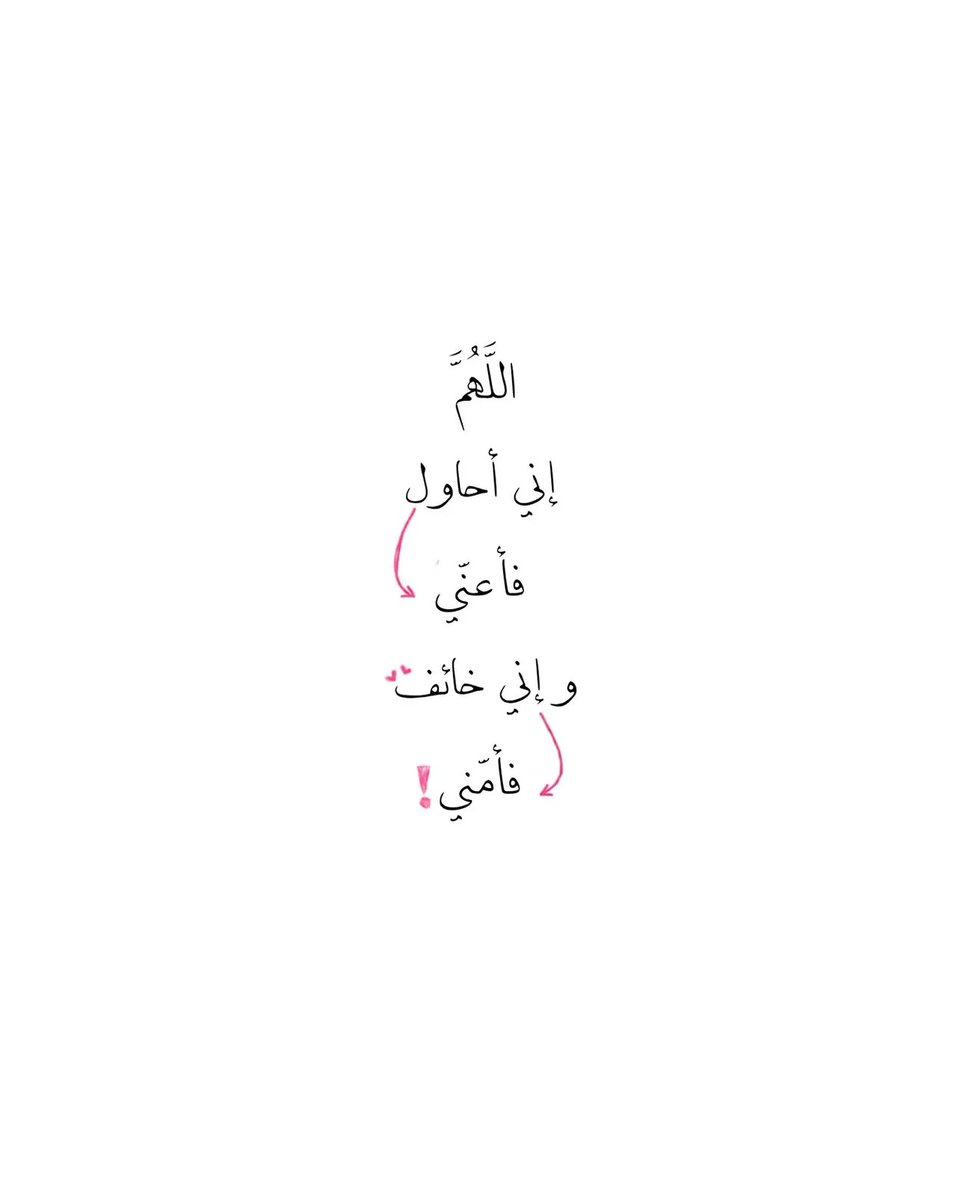 اللَّهُمَّ
إني أحاول
فأعنّي
و إني خائف
فأمّني!